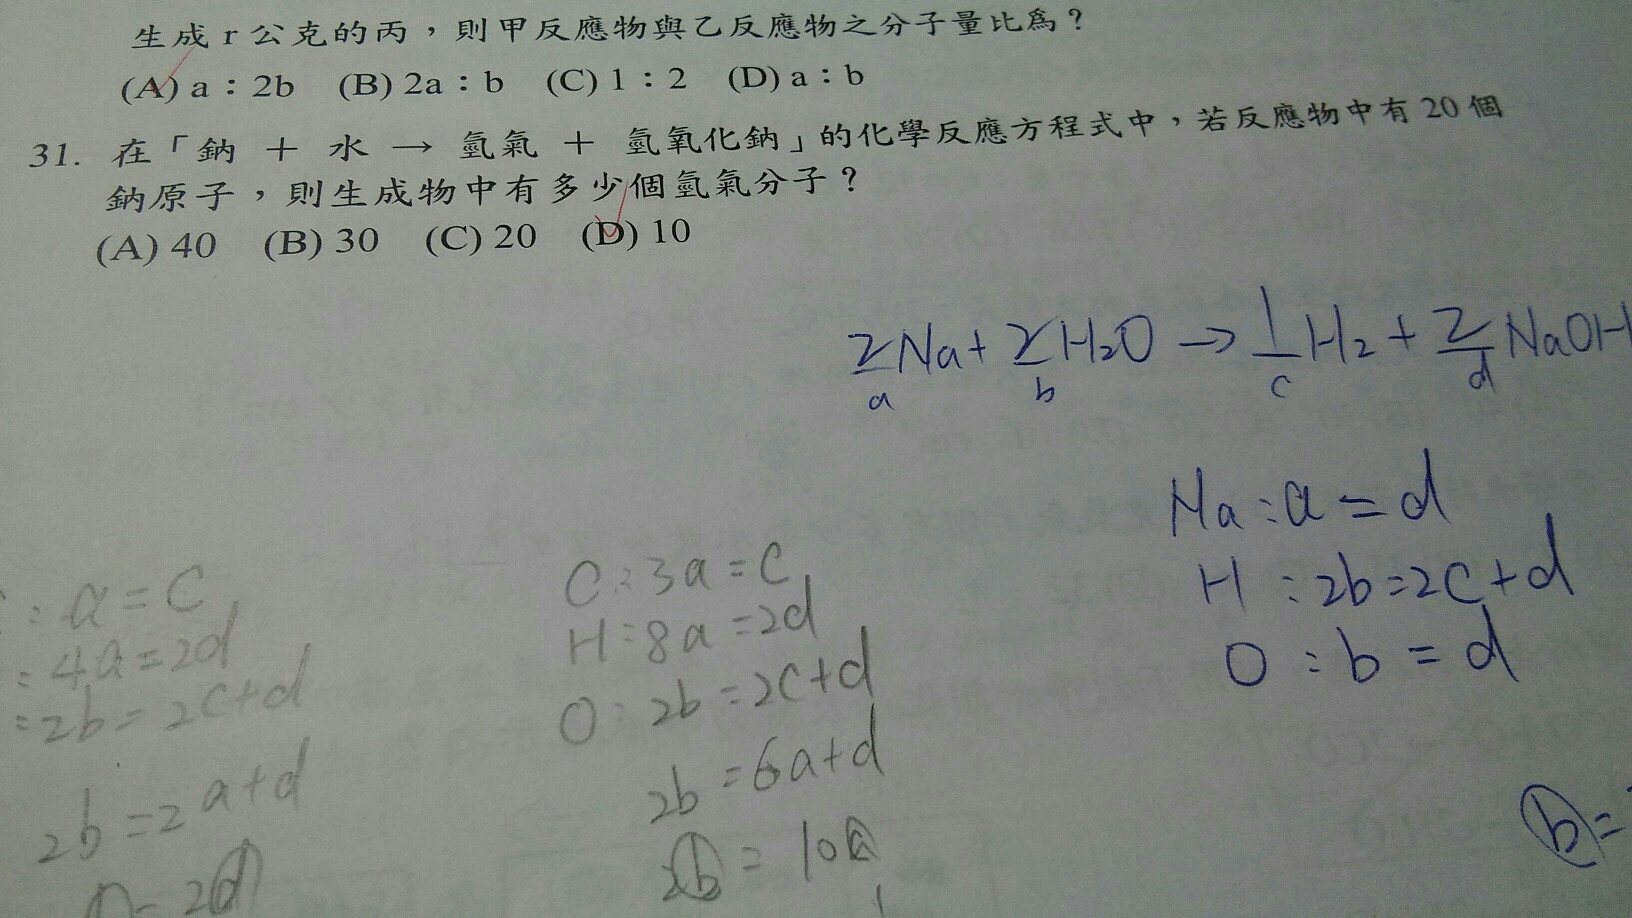 生成 r 公克的丙，則甲反應物與乙反應物之分子量比為？
(A) a：2b (B) 2a：b (C) 1：2 (D) a：b
31. 在「鈉 ＋ 水 → 氫氣 ＋ 氫氧化鈉」的化學反應方程式中，若反應物中有 20 個
鈉原子，則生成物中有多少個氫氣分子？
(A) 40 (B) 30 (C) 20 (D) 10
2Na + 2H₂O → 1H₂ + 2NaOH
a b c d
Na : a = d
H : 2b = 2c + d
O : b = d
C : 3a = c
H : 8a = 2d
O : 2b = 2c + d
2b = 6a + d
2b = 10a
: a = c
: 4a = 2d
: 2b = 2c + d
2b = 2a + d
b =